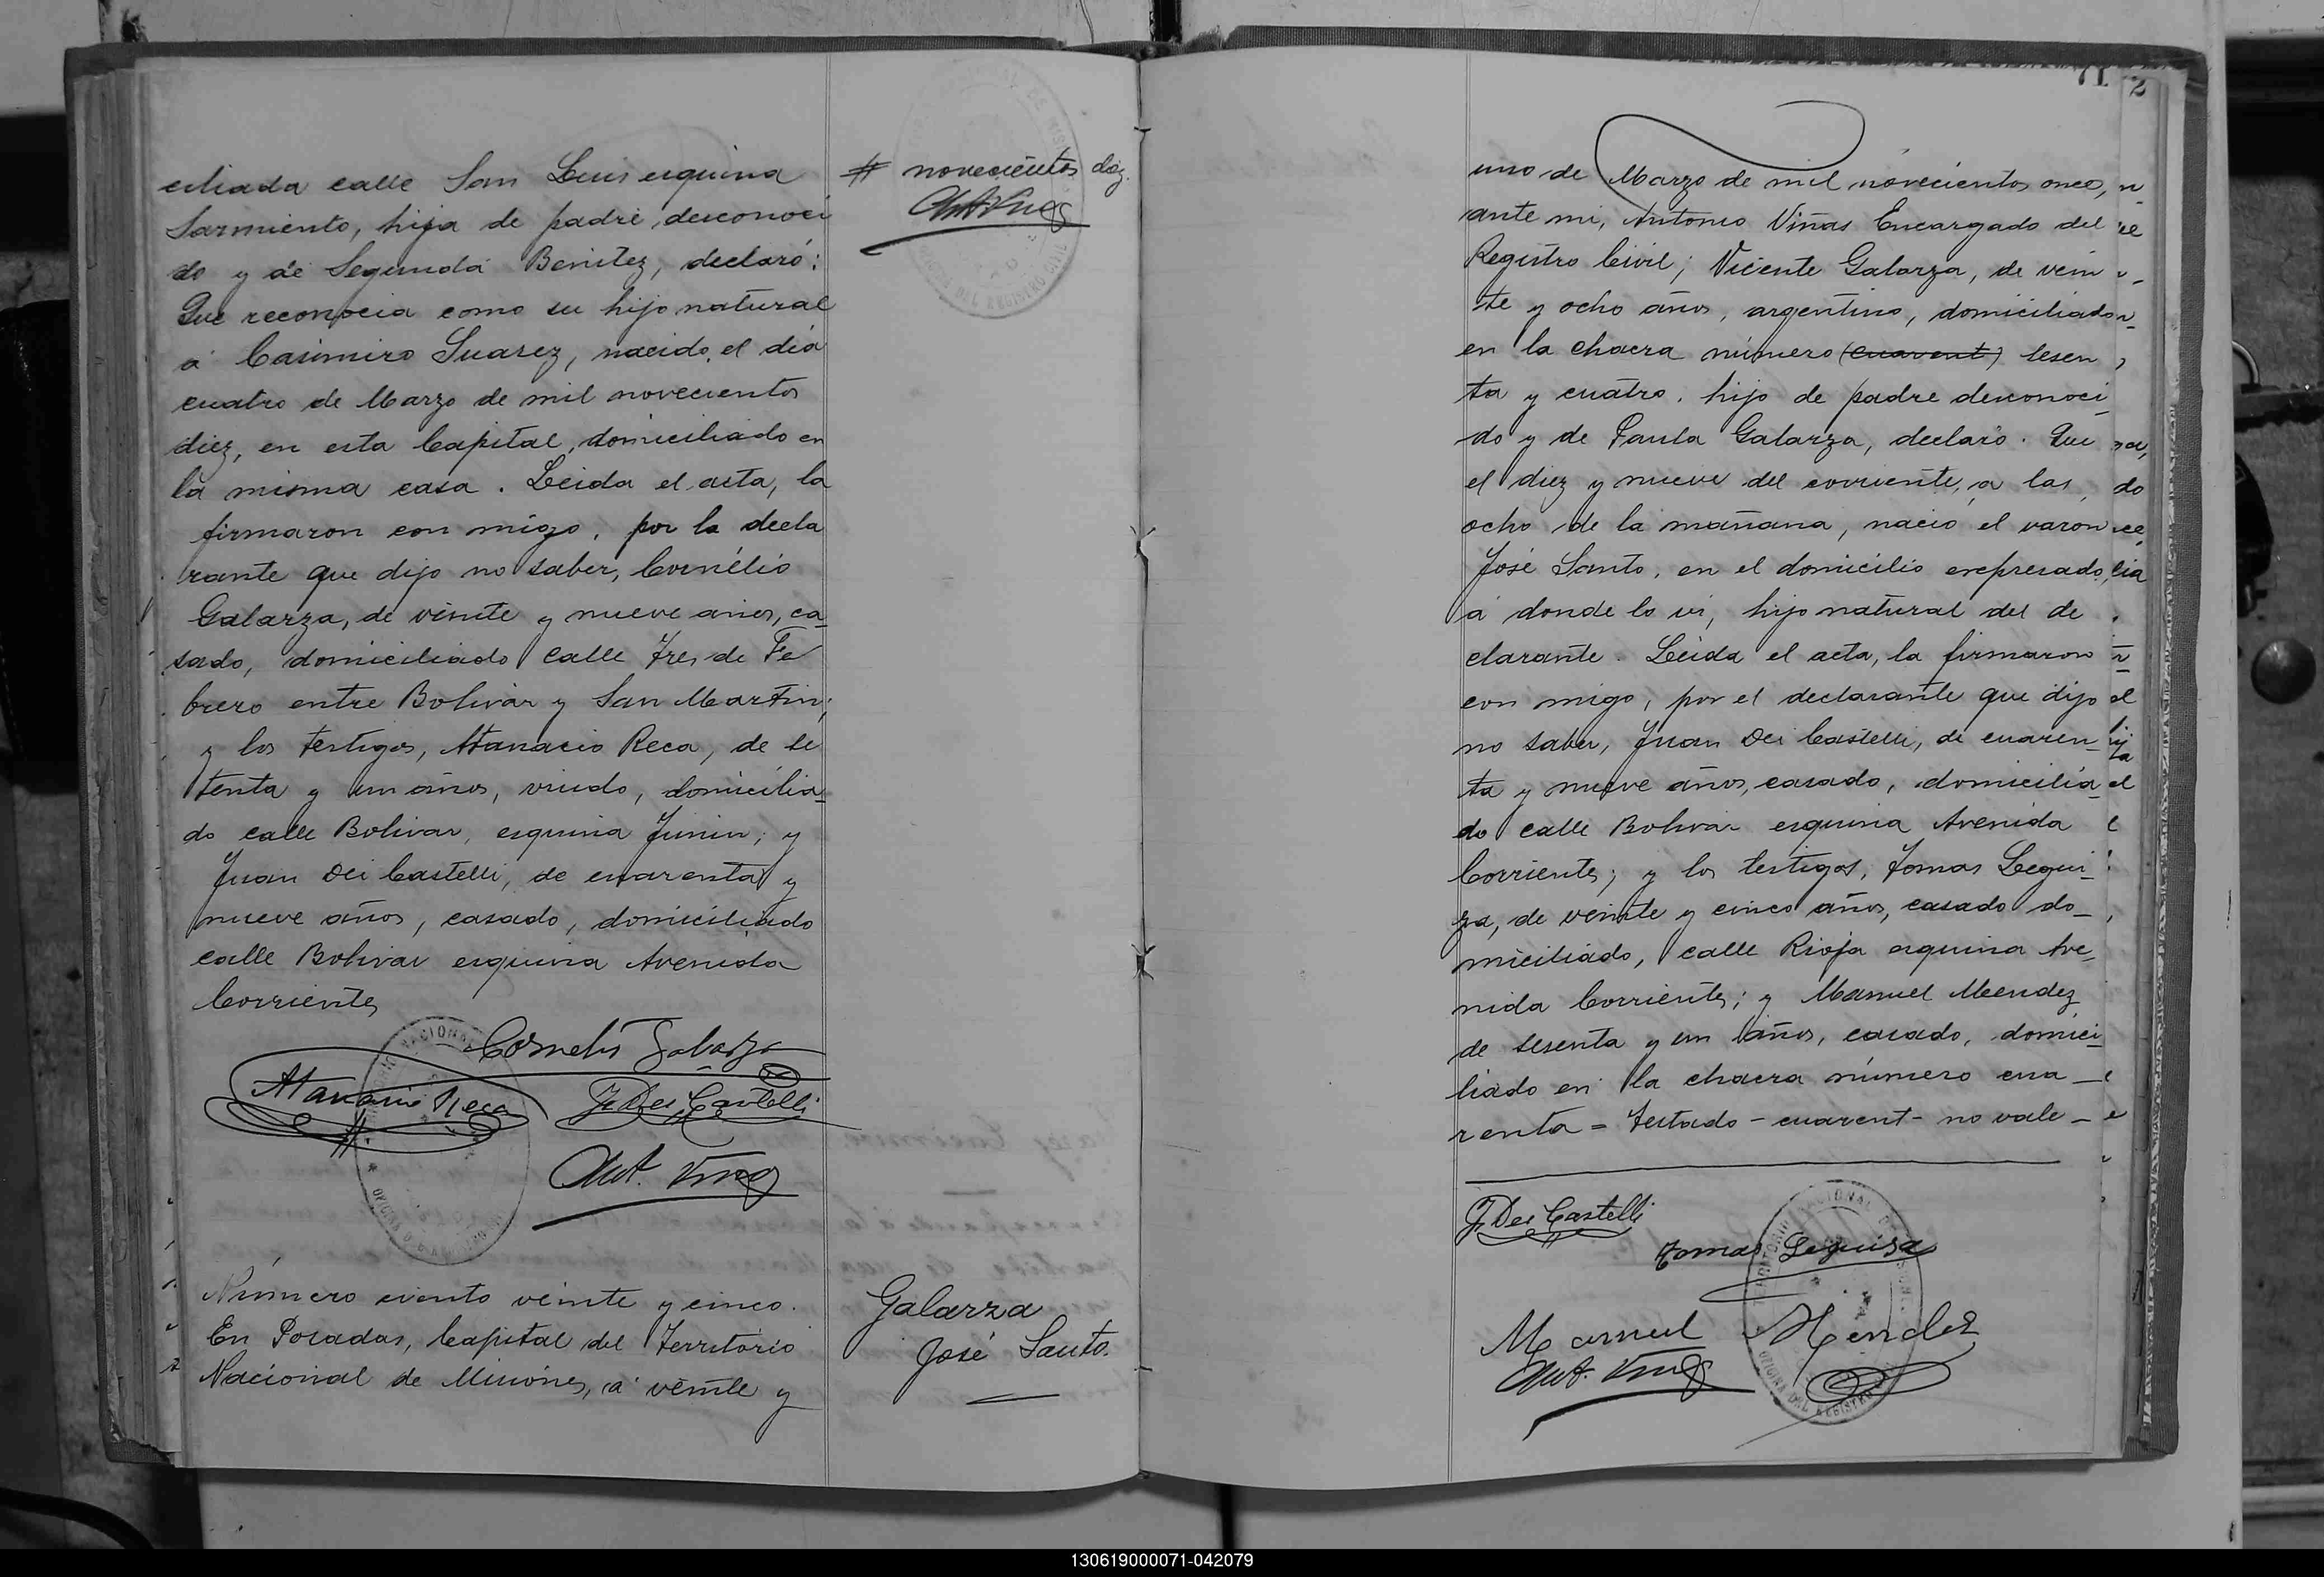 ciliada calle San Luis esquina
Sarmiento, hija de padre desconoci
do y de Segunda Benitez, declaró:
Que reconocia como su hijo natural
á Casimiro Suarez, nacido el dia
cuatro de Marzo de mil novecientos
diez, en esta Capital, domiciliado en
la misma casa. Leida el acta, la
firmaron con migo, por la decla
rante que dijo no saber, Cornélio
Galarza, de veinte y nueve años, ca_
sado, domiciliado calle Tres de Fe
brero entre Bolivar y San Martin;
y los testigos, Atanacio Reca, de se
tenta y un años, viudo, domicilia_
do calle Bolivar, esquina Junin; y
Juan Dei Castelli, de cuarenta y
nueve años, casado, domiciliado
calle Bolivar esquina Avenida
Corrientes
Cornelio Galarza
Atanacio Reca J. Dei Castelli
Ant. Viñas
Número ciento veinte y cinco.
En Posadas, Capital del Territorio
Nacional de Misiones, á veinte y
# novecientos diez.
Ant. Viñas
Galarza
José Santo.
71
2
uno de Marzo de mil novecientos once,
ante mi, Antonio Viñas Encargado del
Registro Civil; Vicente Galarza, de vein
te y ocho años, argentino, domiciliado
en la chacra número (cuarent) sesen
ta y cuatro, hijo de padre desconoci_
do y de Paula Galarza, declaró. Que
el diez y nueve del corriente, á las
ocho de la mañana, nació el varon
José Santo, en el domicilio expresado,
á donde lo vi, hijo natural del de
clarante. Leida el acta, la firmaron
con migo, por el declarante que dijo
no saber, Juan Dei Castelli, de cuaren_
ta y nueve años, casado, domicilia_
do calle Bolivar esquina Avenida
Corrientes; y los testigos, Tomas Legui_
za, de veinte y cinco años, casado do_
miciliado, calle Rioja esquina Ave_
nida Corrientes; y Manuel Mendez
de sesenta y un años, casado, domici_
liado en la chacra número cua_
renta = Testado - cuarent - no vale _
J. Dei Castelli
Tomas Leguisa
Manuel Mendez
Ant. Viñas
130619000071-042079